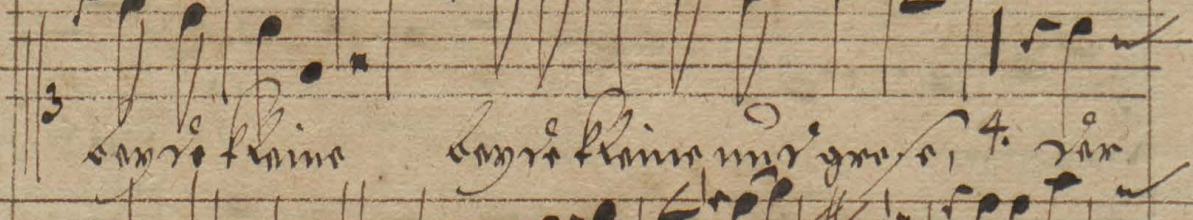 3
beyde kleine beyde kleine und grose, 4. der